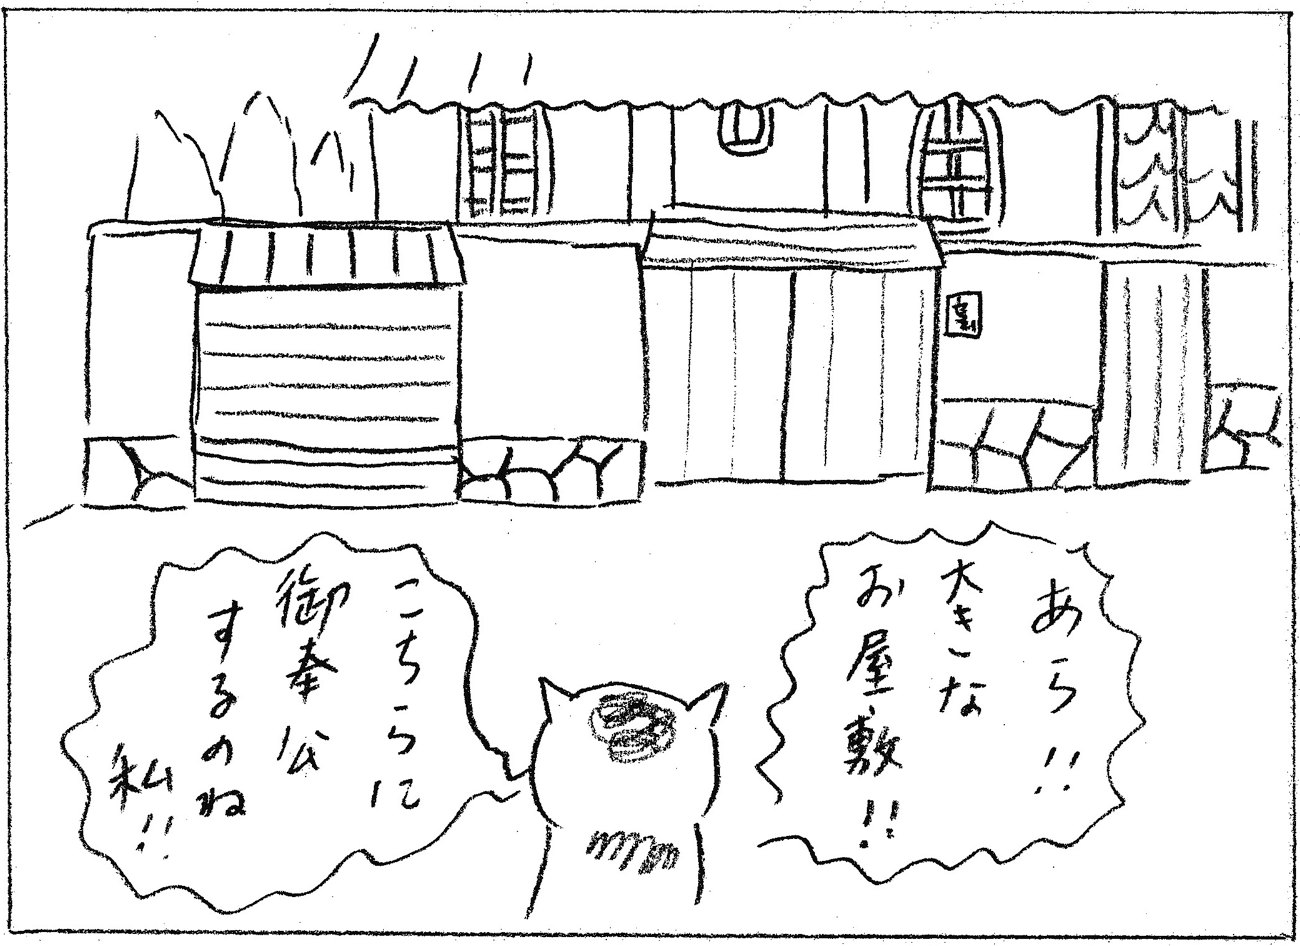 あら!!
大きな
お屋敷!!
こちらに
御奉公
するのね
私!!